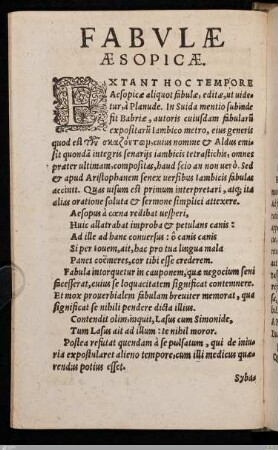 FABVLÆ
ÆSOPICÆ.
EXTANT HOC TEMPORE
Aesopicæ aliquot fabulæ, editæ, ut uide⸗
tur, à Planude. In Suida mentio subinde
fit Babriæ, autoris cuiusdam fabularũ
expositarũ Iambico metro, eius generis
quod est σκαζόντωμ, cuius nomine & Aldus emi⸗
sit quondã integris senarijs iambicis tetrastichis, omnes
præter ultimam, compositas, haud scio an non uero. Sed
& apud Aristophanem senex uersibus iambicis fabulas
acciuit. Quas uisum est primum interpretari, atq; ita
alias oratione soluta & sermone simplici attexere.
Aesopus à cœna redibat uesperi,
Huic allatrabat improba & petulans canis:
Ad ille ad hanc conuersus: ô canis canis
Si per Iouem, ait, hac pro tua lingua mala
Panes coëmeres, cor tibi esse crederem.
Fabula intorquetur in cauponem, quæ negocium seni
facesserat, cuius se loquacitatem significat contemnere.
Et mox prouerbialem fabulam breuiter memorat, qua
significat se nihili pendere dicta illius.
Contendit olim, inquit, Lasus cum Simonide,
Tum Lasus ait ad illum: te nihil moror.
Postea refutat quendam à se pulsatum, qui de iniu⸗
ria expostularet alieno tempore, cum illi medicus quæ⸗
rendus potius esset.
Sybas